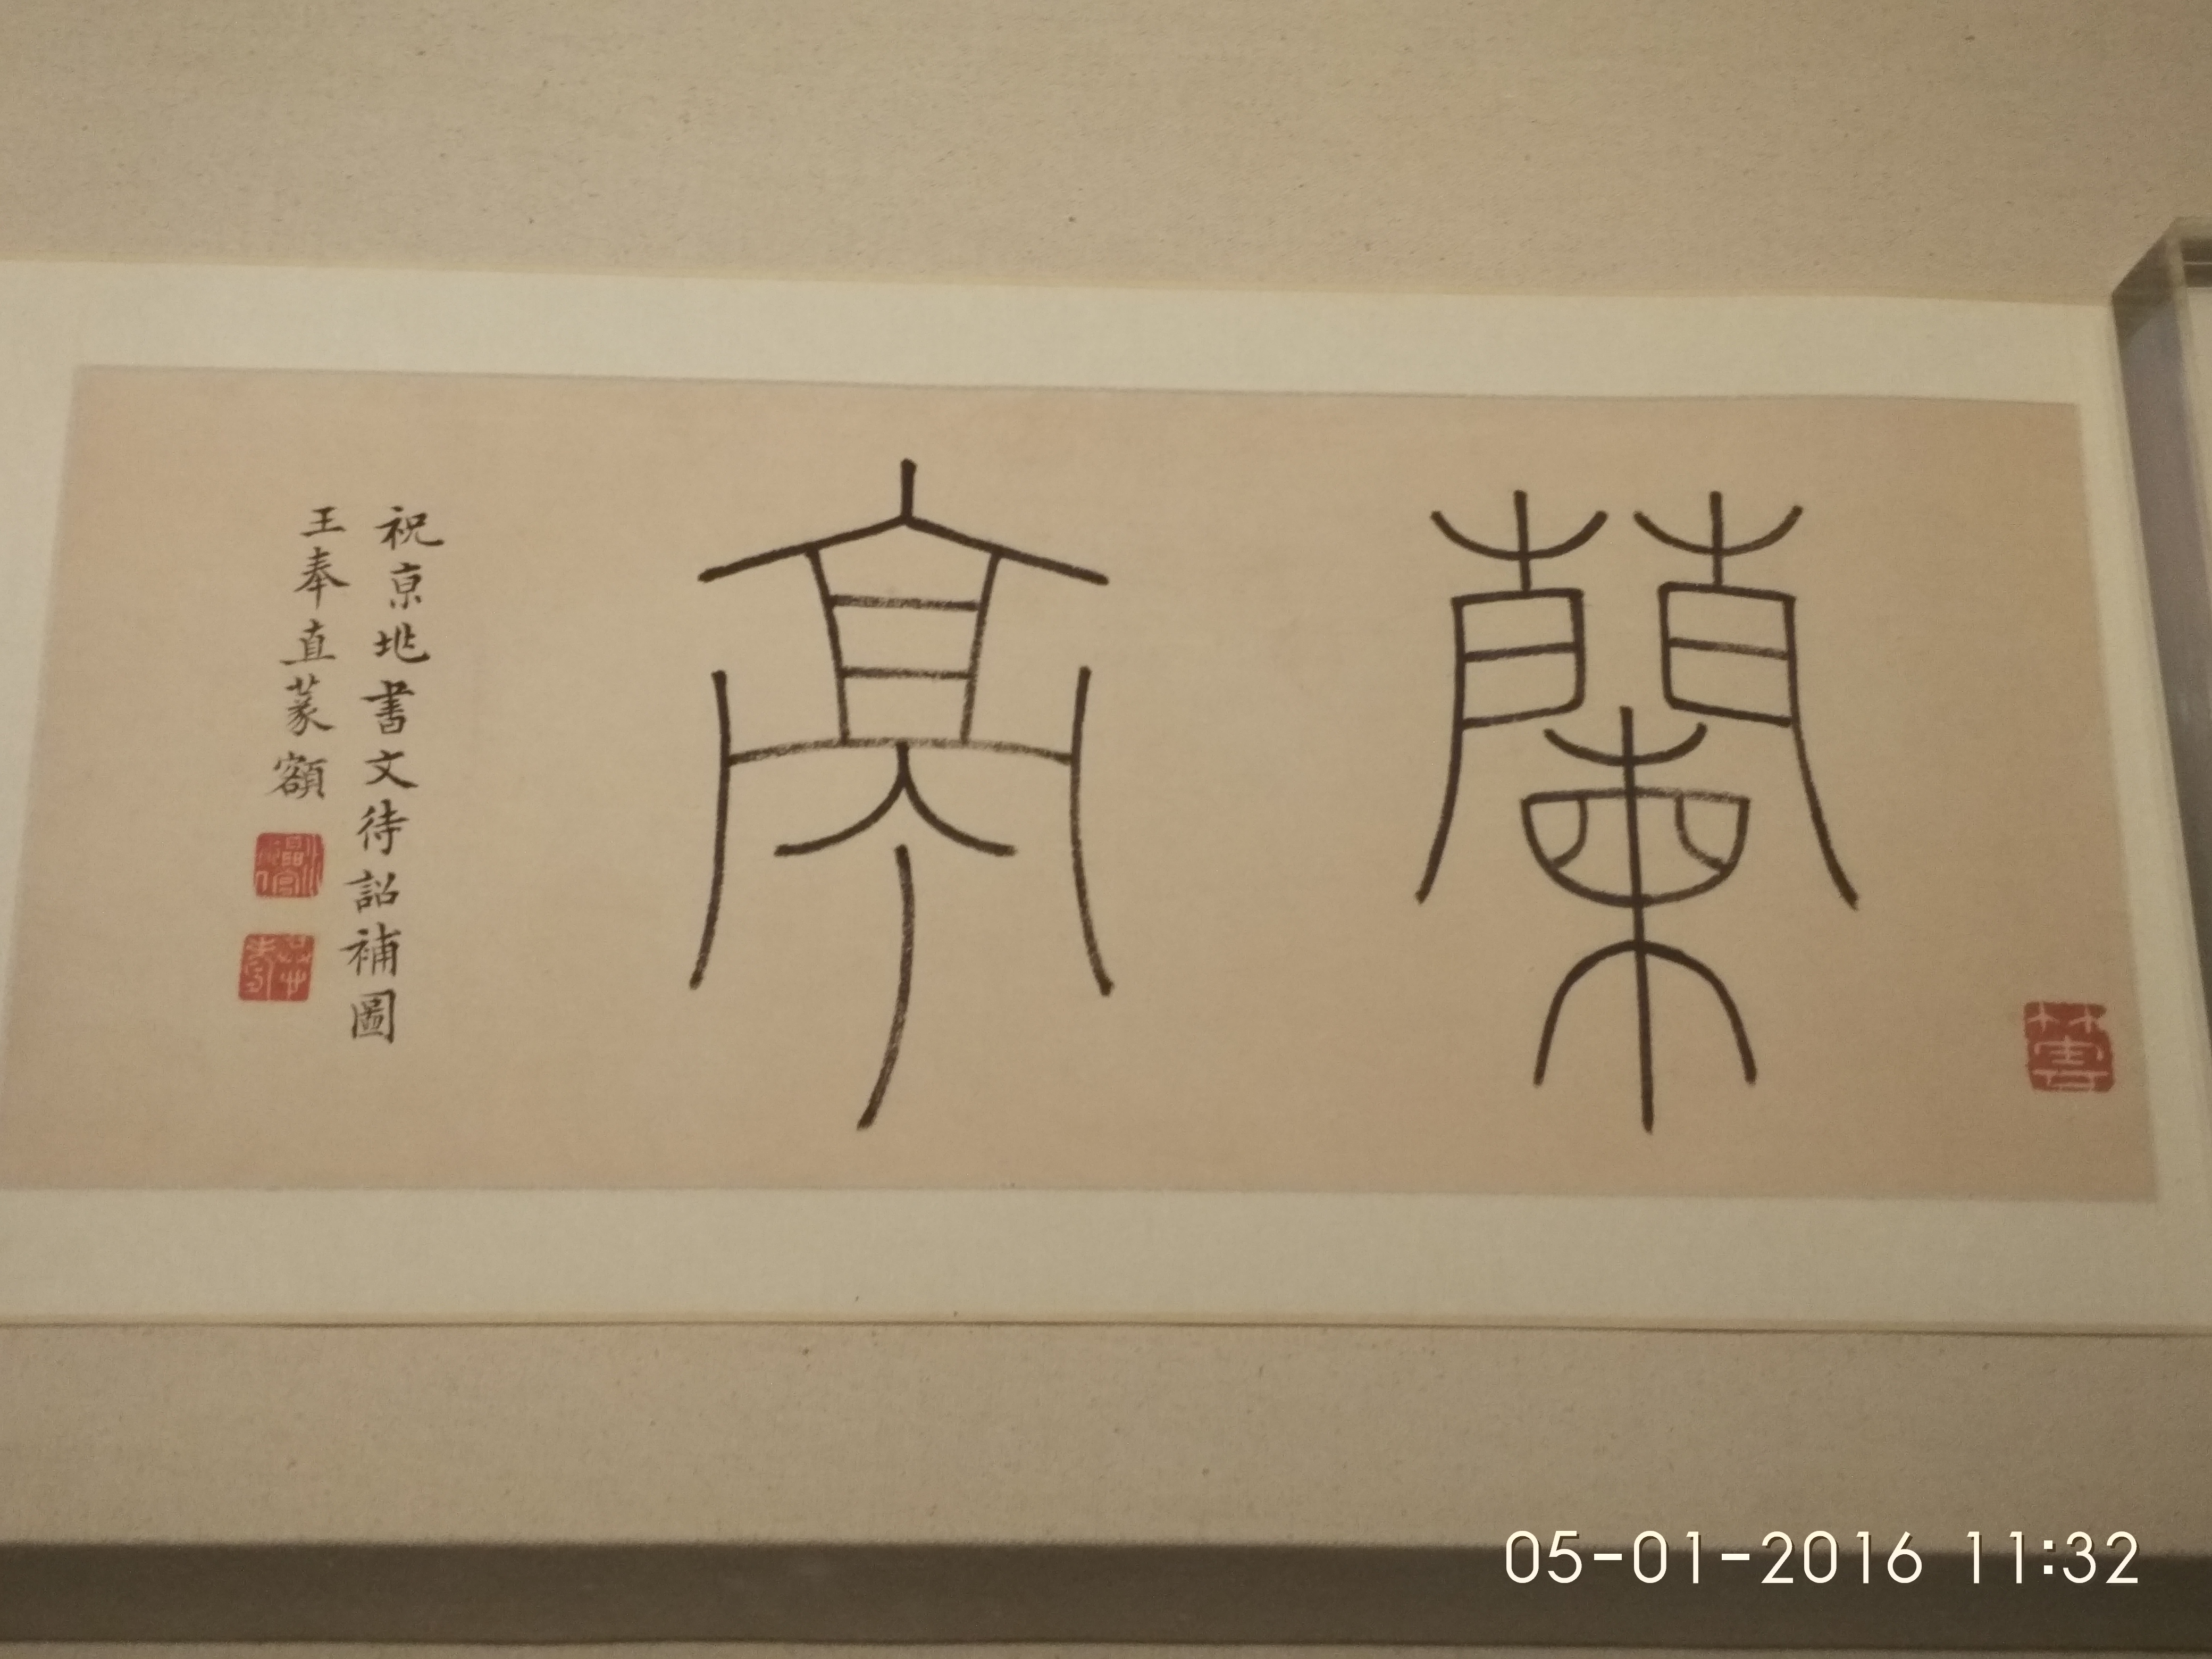 蘭亭
祝京兆書文待詔補圖
王奉直篆額
05-01-2016 11:32